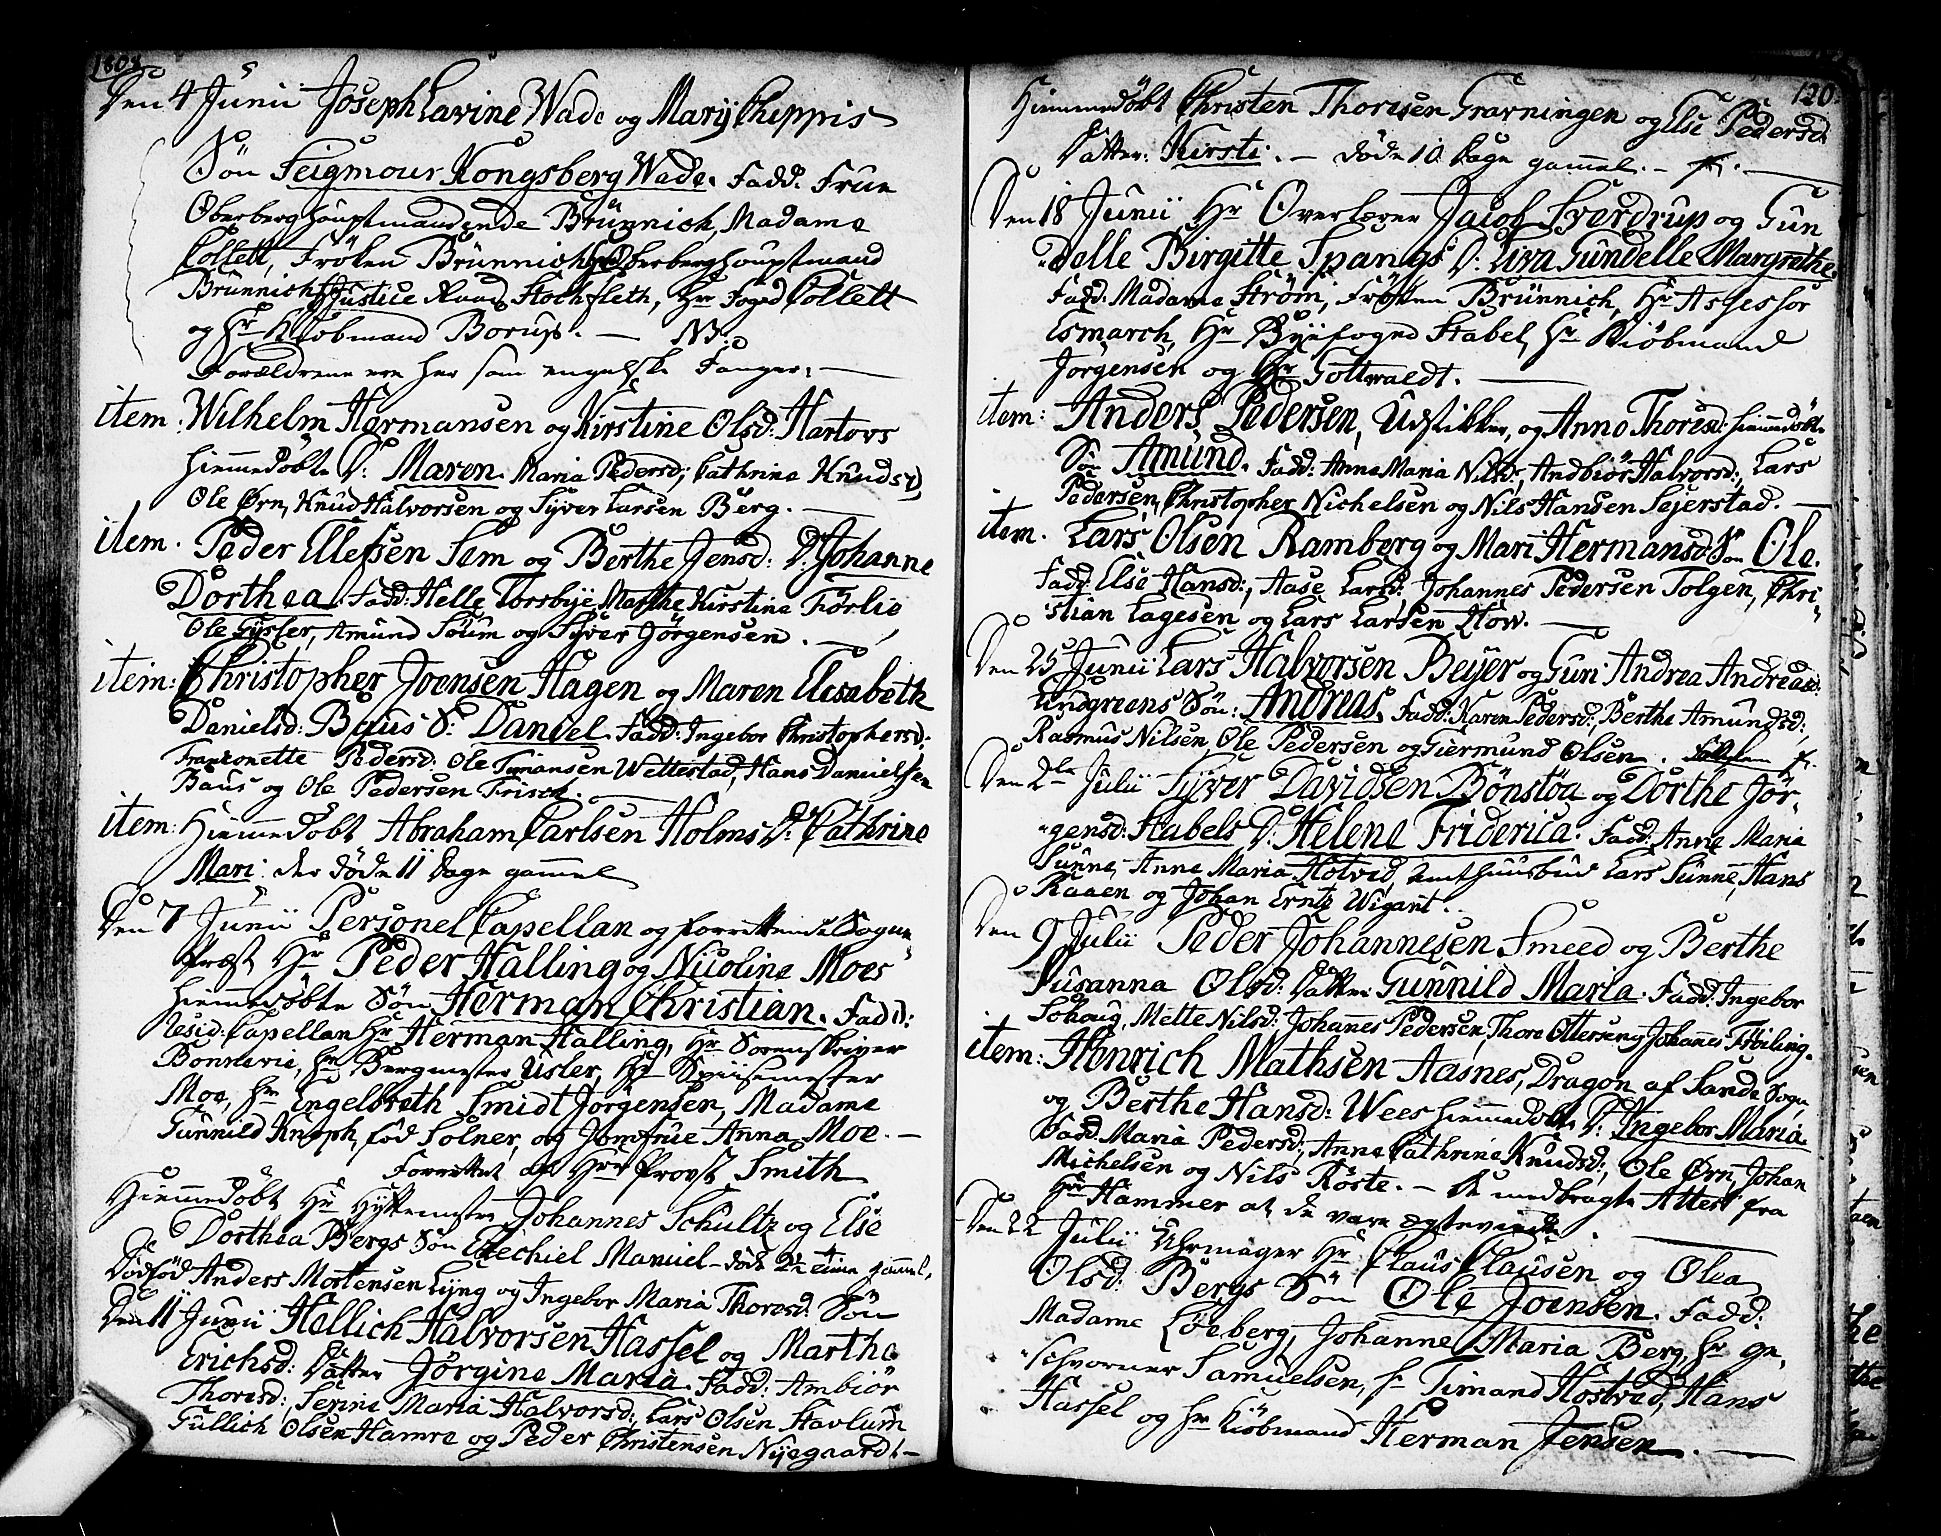 1808
Den 4 Junii Joseph Lavine Wade og Marÿ Cheppis
Søn Seigmour Kongsberg Wade. Fadd: Frue
Oberberghauptmandinde Brünnich, Madame
Collett, Frøken Brünnich, Oberberghauptmand
Brünnich, Justice Raad Stockfleth, Hr Foged Collett
og Hr Kiøbmand Borup. — NB.
Forældrene ere her som engelske Fanger. —
item: Wilhelm Hermansen og Kirstine Olsd: Hartovs
hiemmedøbte D: Maren. Maria Pedersd; Cathrine Knudsd,
Ole Ørn, Knud Halvorsen og Syver Larsen Berg. —
item. Peder Ellefsen Sem og Berthe Jensd: D: Johanne
Dorthea. Fadd: Helle Torsbye, Marthe Kirstine Förlie
Ole Gysler, Amund Solum og Syver Jörgensen. —
item: Christopher Joensen Hagen og Maren Elisabeth
Danielsd: Baus S: Daniel. Fadd: Ingebor Christophersd:
Frantonette Pedersd: Ole Timansen Wettestad, Hans Danielsen
Baus og Ole Pedersen Frisek. —
item: Hiemmedøbt Abraham Carlsen Holms D: Cathrine
Mari: der døde 11 Dage gammel
Den 7 Junii Personel Capellan og forrettende Sogne
Præst Hr Peder Halling og Nicoline Moes
hiemmedøbte Søn Herman Christian. Fadd:
Resid: Capellan Hr Herman Halling, Hr Sorenskriver
Bonnevie, Hr Bergmester Üsler, Hr Spiisemester
Moe, Hr Engelbreth Smidt Jorgensen, Madame
Gunnild Knoph, fød Solner, og Jomfrue Anna Moe. —
Forrettet af Hr Provst Smith
Hiemmedøbt Hr Hyttemester Johannes Schultz og Else
Dorthea Bergs Søn Ezechiel Manuel - døde 2½ time gammel.
Dødfød Anders Mortensen Lyng og Ingebor Maria Thoresd: Søn
Den 11 Junii Hellich Halvorsen Hassel og Marthe
Erichsd: Datter Jörgine Maria. Fadd: Ambiør
Thoresd: Serine Maria Halvorsd; Lars Olsen Stavlum
Gullich Olsen Hamre og Peder Christensen Nyegaard. —
120
Hiemmedøbt Christen Thoresen Grarningen og Else Pedersd:
Datter: Kirsti. — døde 10 Dage gammel. —
Den 18 Junii Hr Overlærer Jacob Sverdrup og Gun
delle Birgitte Spangs D: Liva Gundelle Margrethe.
Fadd: Madame Strøm, Frøken Brünnich, Hr Assessor
Esmarch, Hr Byefoged Stabel, Hr Kiöbmand
Jörgensen og Hr Gottwaldt. —
item: Anders Pedersen, Udstikker, og Anne Thoresd: hiemmedøbt
Sø: Amund. Fadd: Anna Maria Nilsd:, Andbiör Halvorsd:, Lars
Pedersen, Christopher Nichelsen og Nils Hansen Sejerstad. —
item. Lars Olsen Ramberg og Mari Hermansd Søn Ole.
Fadd: Else Hansd:, Aase Larsd: Johannes Pedersen Tolgen, Chri-
stian Lagesen og Lars Larsen How. —
Den 25 Junii Lars Halvorsen Beyer og Guri Andrea Andreasd:
Lindgreens Søn: Andreas. Fadd: Karen Pedersd:, Berthe Amundsd;
Rasmus Nilsen, Ole Pedersen og Giermund Olsen.
Den 2de Julii Syver Davidsen Bönstöa og Dorthe Jör-
gensd: Stabels D: Helene Friderica. Fadd: Anne Maria
Sunne, Anne Maria Hotvid, Amthuusbud Lars Sunne, Hans
Raaen og Johan Erntz Wigant.
Den 9 Julii Peder Johannesen Smeed og Berthe
Susanna Olsd: Datter Gunnild Maria. Fadd: Ingebor
Lohoug, Mette Nilsd: Johannes Pedersen, Thore Ottersen og Johannes Fröiling.
item: Henrich Mathsen Aasnes, Dragon af Sande Sogn
og Berthe Hansd: Wees hiemmedøbt D: Ingebor Maria.
Fadd: Maria Pedersd:, Anne Cathrine Knudsd:, Ole Ørn, Johan
Michelsen og Nils Röste. — De medbragte Attest fra
Hr Hammer at de vare ægteviede. —
Den 22 Julii Uhrmager Hr Claus Clausen og Olea
Olsd: Bergs Søn Ole Joensen. Fadd:
Madame Löeberg, Johanne Maria Berg, Hr Ge-
schvorner Samuelsen, Hr Timand Hostvæd, Hans
Hassel og Hr Kiöbmand Herman Jensen. —